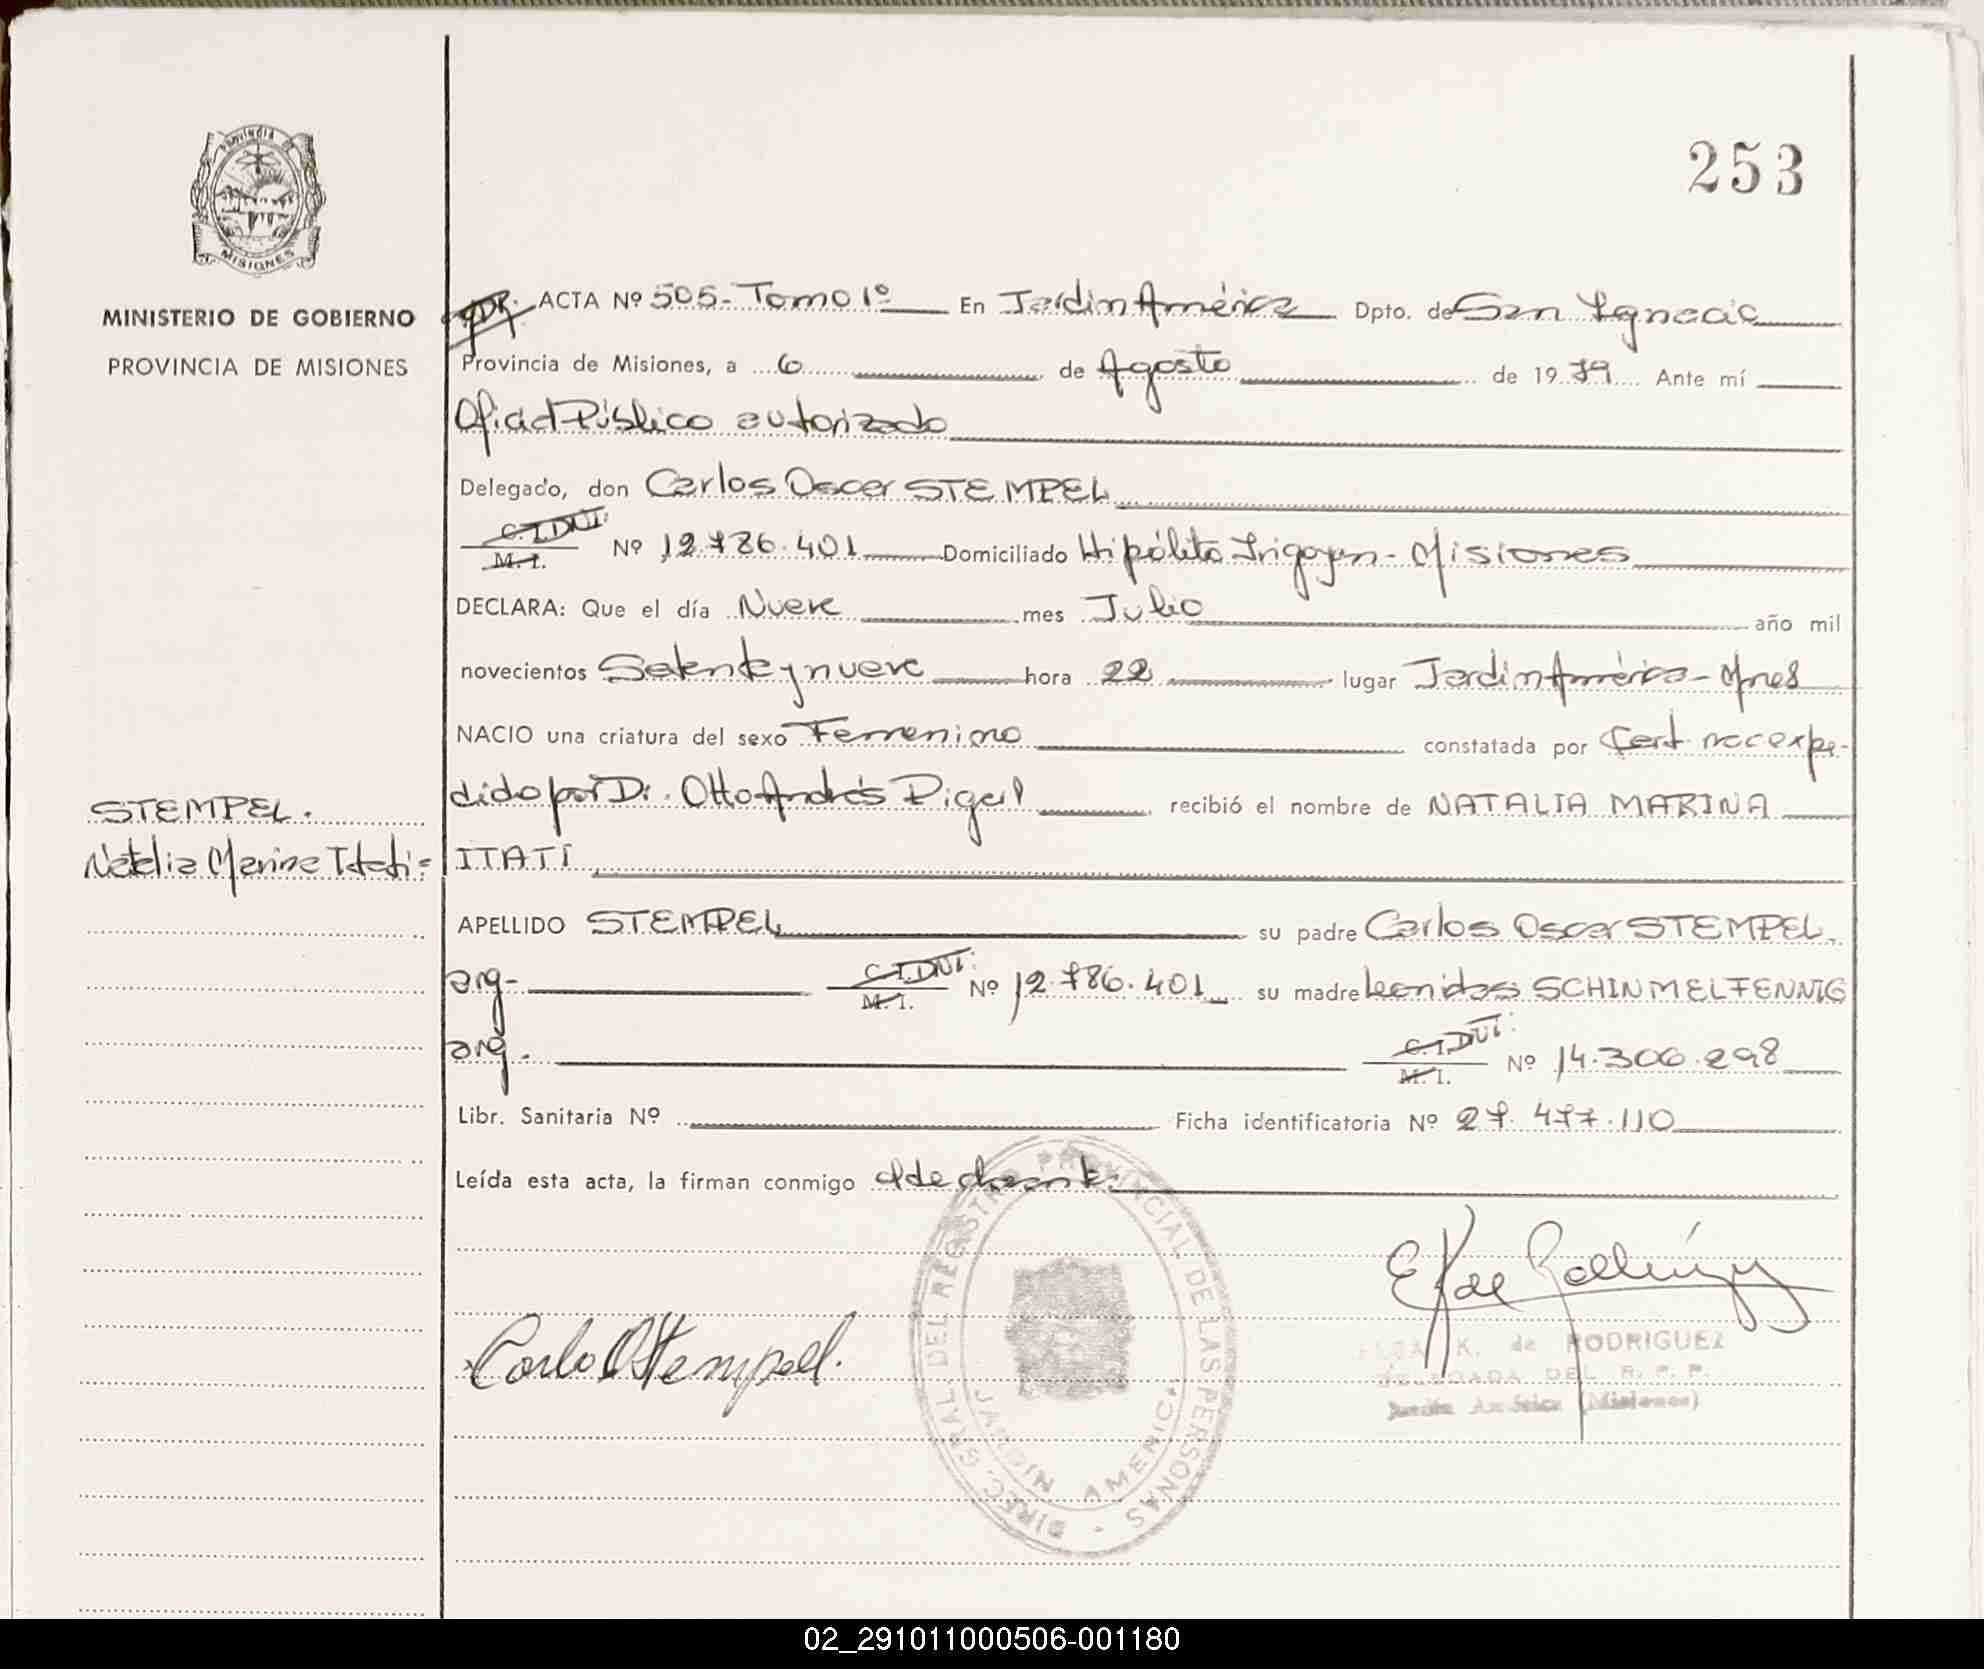 Provincia de
MISIONES
MINISTERIO DE GOBIERNO
PROVINCIA DE MISIONES
253
ACTA Nº 505- Tomo 1º En Jardín América Dpto. de San Ignacio
Provincia de Misiones, a 6 de Agosto de 1979 Ante mí
Oficial Público autorizado
Delegado, don Carlos Oscar STEMPEL
C.I. DNI:
M. I. Nº 12.786.401 Domiciliado Hipólito Irigoyen - Misiones
DECLARA: Que el día Nueve mes Julio año mil
novecientos Setenta y nueve hora 22 lugar Jardín América - Mnes
NACIO una criatura del sexo Femenino constatada por Cert. nac expe-
dido por Dr. Otto Andrés recibió el nombre de NATALIA MARINA
STEMPEL.
Natalia Marina Itatí =
ITATÍ
APELLIDO STEMPEL su padre Carlos Oscar STEMPEL
arg- C.I. DNI: M. I. Nº 12.786.401 su madre Leonidas SCHINMELFENNIG
arg. C.I. DNI: M. I. Nº 14.306.298
Libr. Sanitaria Nº Ficha identificatoria Nº 27.477.110
Leída esta acta, la firman conmigo el declarante
DIREC. GRAL. DEL REGISTRO PROVINCIAL DE LAS PERSONAS -
JARDIN AMERICA
Carlos O Stempel.
E K de Rodríguez
ELSA K. de RODRIGUEZ
DELEGADA DEL R. P. P.
Jardín América (Misiones)
02_291011000506-001180